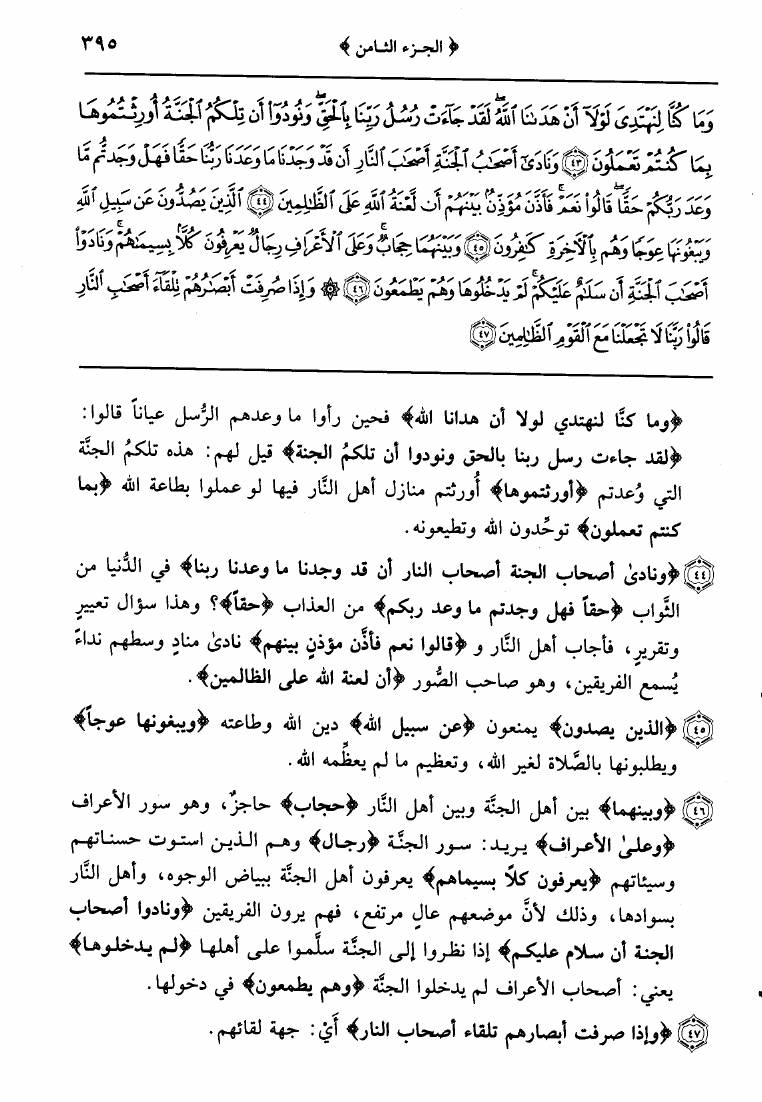 ﴿ الجزء الثامن ﴾ ٣٩٥
وَمَا كُنَّا لِنَهْتَدِىَ لَوْلَآ أَنْ هَدَىٰنَا ٱللَّهُ ۖ لَقَدْ جَآءَتْ رُسُلُ رَبِّنَا بِٱلْحَقِّ ۖ وَنُودُوٓا۟ أَن تِلْكُمُ ٱلْجَنَّةُ أُورِثْتُمُوهَا
بِمَا كُنتُمْ تَعْمَلُونَ ﴿٤٣﴾ وَنَادَىٰٓ أَصْحَٰبُ ٱلْجَنَّةِ أَصْحَٰبَ ٱلنَّارِ أَن قَدْ وَجَدْنَا مَا وَعَدَنَا رَبُّنَا حَقًّا فَهَلْ وَجَدتُّم مَّا
وَعَدَ رَبُّكُمْ حَقًّا ۖ قَالُوا۟ نَعَمْ ۚ فَأَذَّنَ مُؤَذِّنٌۢ بَيْنَهُمْ أَن لَّعْنَةُ ٱللَّهِ عَلَى ٱلظَّٰلِمِينَ ﴿٤٤﴾ ٱلَّذِينَ يَصُدُّونَ عَن سَبِيلِ ٱللَّهِ
وَيَبْغُونَهَا عِوَجًا وَهُم بِٱلْءَاخِرَةِ كَٰفِرُونَ ﴿٤٥﴾ وَبَيْنَهُمَا حِجَابٌ ۚ وَعَلَى ٱلْأَعْرَافِ رِجَالٌ يَعْرِفُونَ كُلًّۢا بِسِيمَىٰهُمْ ۚ وَنَادَوْا۟
أَصْحَٰبَ ٱلْجَنَّةِ أَن سَلَٰمٌ عَلَيْكُمْ ۚ لَمْ يَدْخُلُوهَا وَهُمْ يَطْمَعُونَ ﴿٤٦﴾ ۞ وَإِذَا صُرِفَتْ أَبْصَٰرُهُمْ تِلْقَآءَ أَصْحَٰبِ ٱلنَّارِ
قَالُوا۟ رَبَّنَا لَا تَجْعَلْنَا مَعَ ٱلْقَوْمِ ٱلظَّٰلِمِينَ ﴿٤٧﴾
﴿وما كنَّا لنهتدي لولا أن هدانا الله﴾ فحين رأوا ما وعدهم الرُّسل عياناً قالوا:
﴿لقد جاءت رسل ربنا بالحق ونودوا أن تلكمُ الجنة﴾ قيل لهم: هذه تلكمُ الجنَّة
التي وُعدتم ﴿أورثتموها﴾ أُورثتم منازل أهل النَّار فيها لو عملوا بطاعة الله ﴿بما
كنتم تعملون﴾ توحِّدون الله وتطيعونه.
﴿٤٤﴾ ﴿ونادىٰ أصحاب الجنة أصحاب النار أن قد وجدنا ما وعدنا ربنا﴾ في الدُّنيا من
الثَّواب ﴿حقاً فهل وجدتم ما وعد ربكم﴾ من العذاب ﴿حقاً﴾؟ وهذا سؤال تعييرٍ
وتقريرٍ، فأجاب أهل النَّار و ﴿قالوا نعم فأذَّن مؤذنٍ بينهم﴾ نادىٰ منادٍ وسطهم نداءً
يُسمع الفريقين، وهو صاحب الصُّور ﴿أن لعنة الله على الظالمين﴾.
﴿٤٥﴾ ﴿الذين يصدون﴾ يمنعون ﴿عن سبيل الله﴾ دين الله وطاعته ﴿ويبغونها عوجاً﴾
ويطلبونها بالصَّلاة لغير الله، وتعظيم ما لم يعظِّمه الله.
﴿٤٦﴾ ﴿وبينهما﴾ بين أهل الجنَّة وبين أهل النَّار ﴿حجاب﴾ حاجزٌ، وهو سور الأعراف
﴿وعلىٰ الأعراف﴾ يريد: سور الجنَّة ﴿رجال﴾ وهم الذين استوت حسناتهم
وسيئاتهم ﴿يعرفون كلاً بسيماهم﴾ يعرفون أهل الجنَّة ببياض الوجوه، وأهل النَّار
بسوادها، وذلك لأنَّ موضعهم عالٍ مرتفع، فهم يرون الفريقين ﴿ونادوا أصحاب
الجنة أن سلام عليكم﴾ إذا نظروا إلى الجنَّة سلَّموا على أهلها ﴿لم يدخلوها﴾
يعني: أصحاب الأعراف لم يدخلوا الجنَّة ﴿وهم يطمعون﴾ في دخولها.
﴿٤٧﴾ ﴿وإذا صرفت أبصارهم تلقاء أصحاب النار﴾ أَيْ: جهة لقائهم.